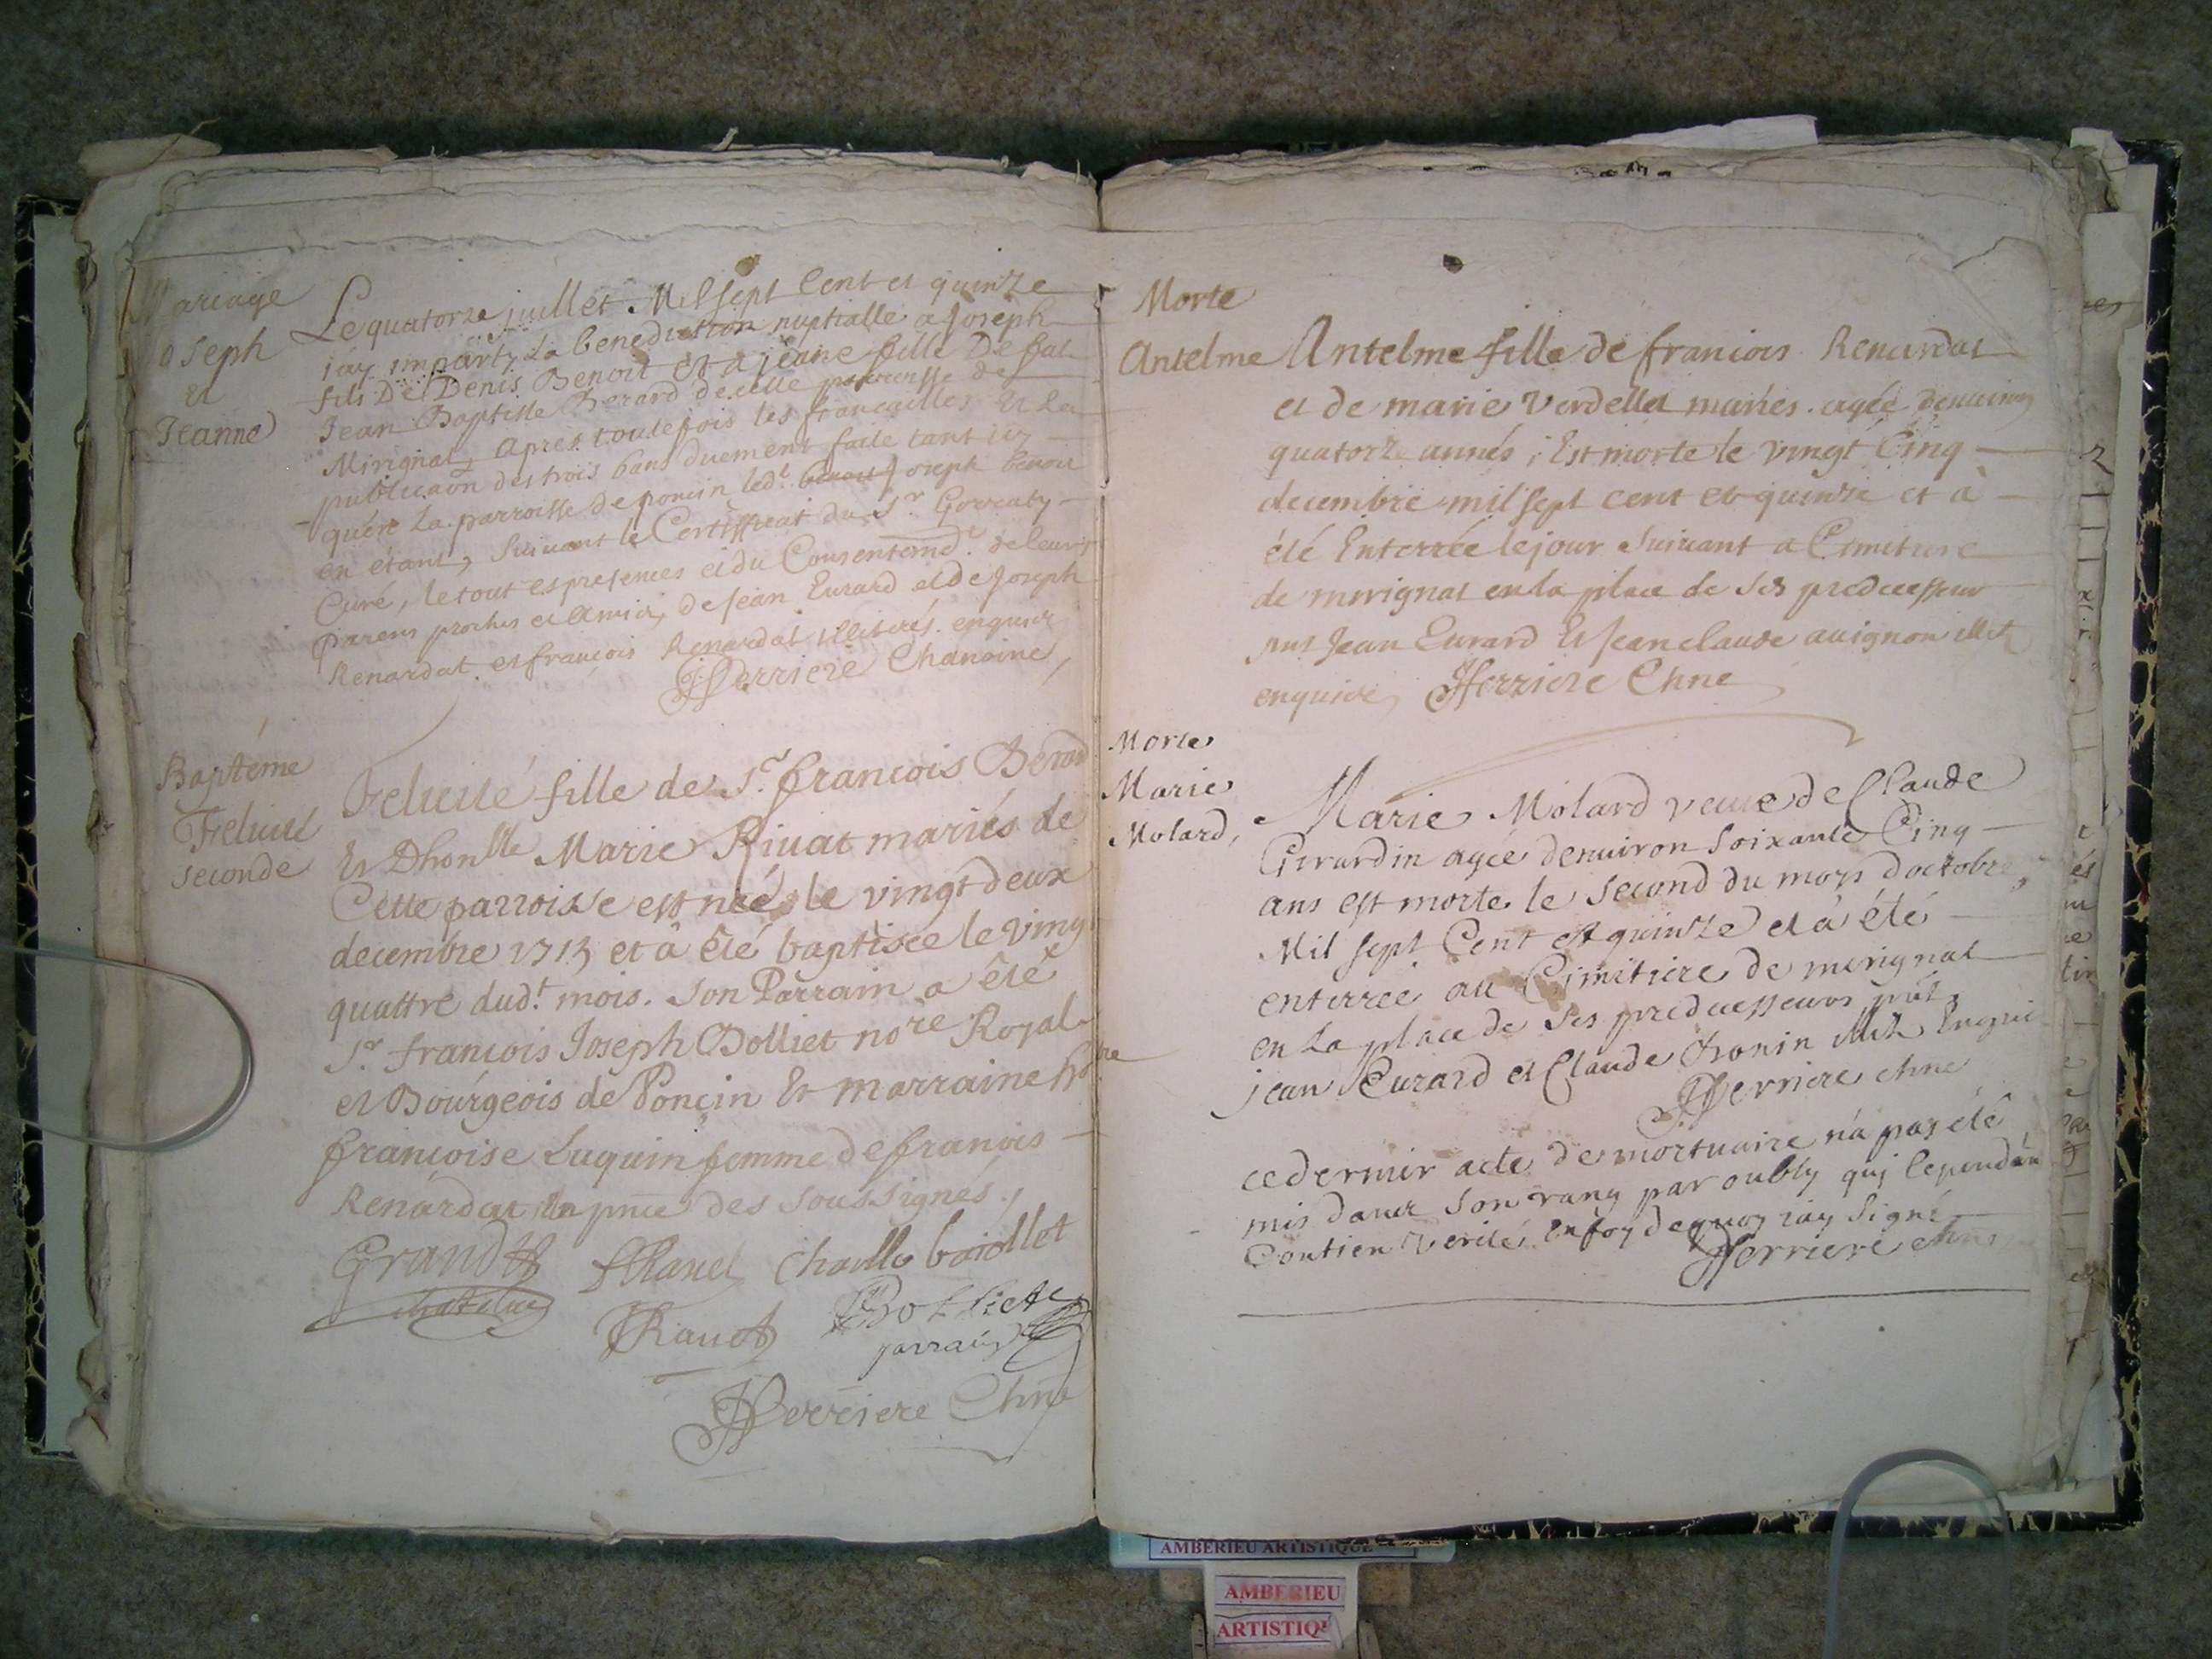 Mariage
Joseph
et
Jeanne
Le quatorze juillet Mil sept Cent et quinze
iay imparty La benediction nuptialle a Joseph
fils De Denis Benoit et a jeane fille De fut
Jean Baptiste Berard de cette parroisse de
Mirignat, apres toutefois les fiancailles et La
publicaon des trois bans duement faite tant icy
qu'en La parroisse de poncin led.t benoit Joseph benoit
en étant, suivant le Certifficat du Sr Gorraty
Curé, le tout es presences et du Consentemt. de leurs
parens proches et Amis, de Jean Eurard et de Joseph
Renardat et françois Renardat illiterés enquis
Ferriere Chanoine
Baptéme
Felicité
seconde
Felicité fille de Sr. françois Berard
Et Dhonlle Marie Rivat mariés de
Cette parroisse est née le vingt deux
decembre 1715 et â été baptisée le vingt
quattre dud.t mois. Son Parrain a êté
Sr. françois Joseph Bolliet nore Royal
et Bourgeois de Poncin Et marraine hble
françoise Luquin femme de francois
Renardat En pnce des soussignés,
Grand
Charlle baidllet
Bolliet
parrain
Ferriere Chne
Morte
Antelme
Antelme fille de francois Renardat
et de marie Verdellet mariés agée denviron
quatorze annés, Est morte le vingt Cinq
decembre mil sept cent et quinze et à
été Enterrée le jour suivant a Cimetiere
de merignat en la place de ses predecesseur
pnt Jean Eurard Et Jean claude avignon illit
enquis, Ferriere Chne
Morte
Marie
Molard,
Marie Molard veuve de Claude
Girardin agée denviron soixante Cinq
ans est morte le second du moys doctobre
Mil sept Cent et quinze et a été
enterrée au Cimitiere de merignat
en La place de ses predecesseurs pnts
jean Eurard et Claude Bonin illit Enquis
Ferriere chne
ce dernier acte de mortuaire n'a pas été
mis dans son rang par oubly qui Cependan
Contien Verité, En foy de quoy iay Signé
Ferriere chne
AMBERIEU ARTISTIQUE
AMBERIEU
ARTISTIQ